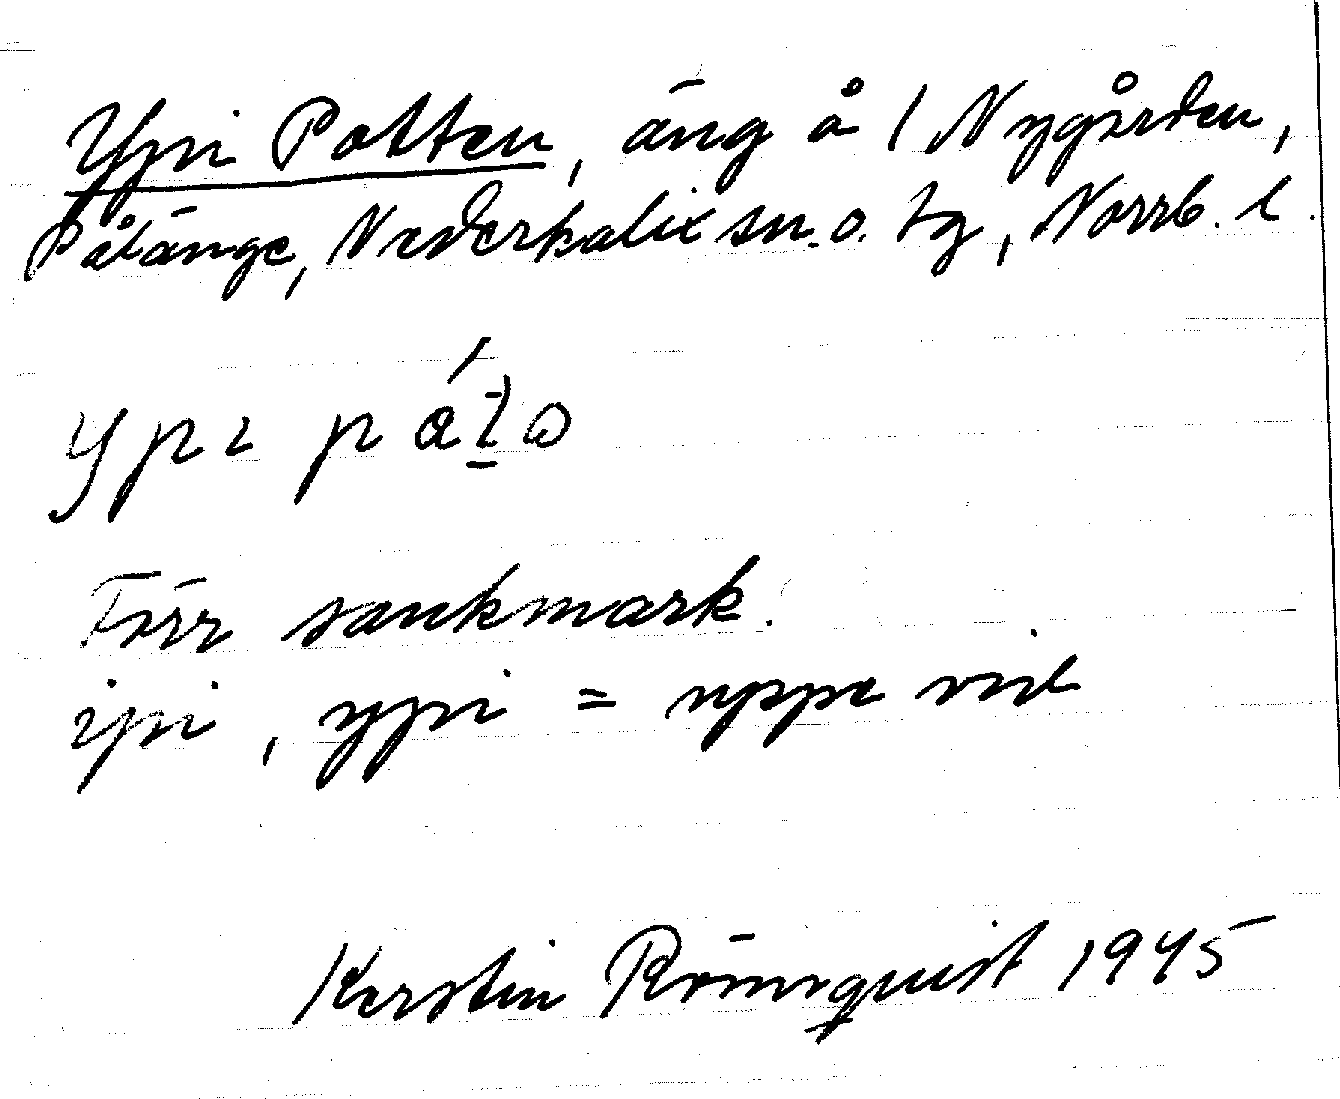 Ypi Potten, äng å 1 Nygården,
Pålänge, Nederkalix sn. o. tg, Norrb. l.
Förr sankmark.
ipi, ypi = uppe vid
Kerstin Rönnquist 1945